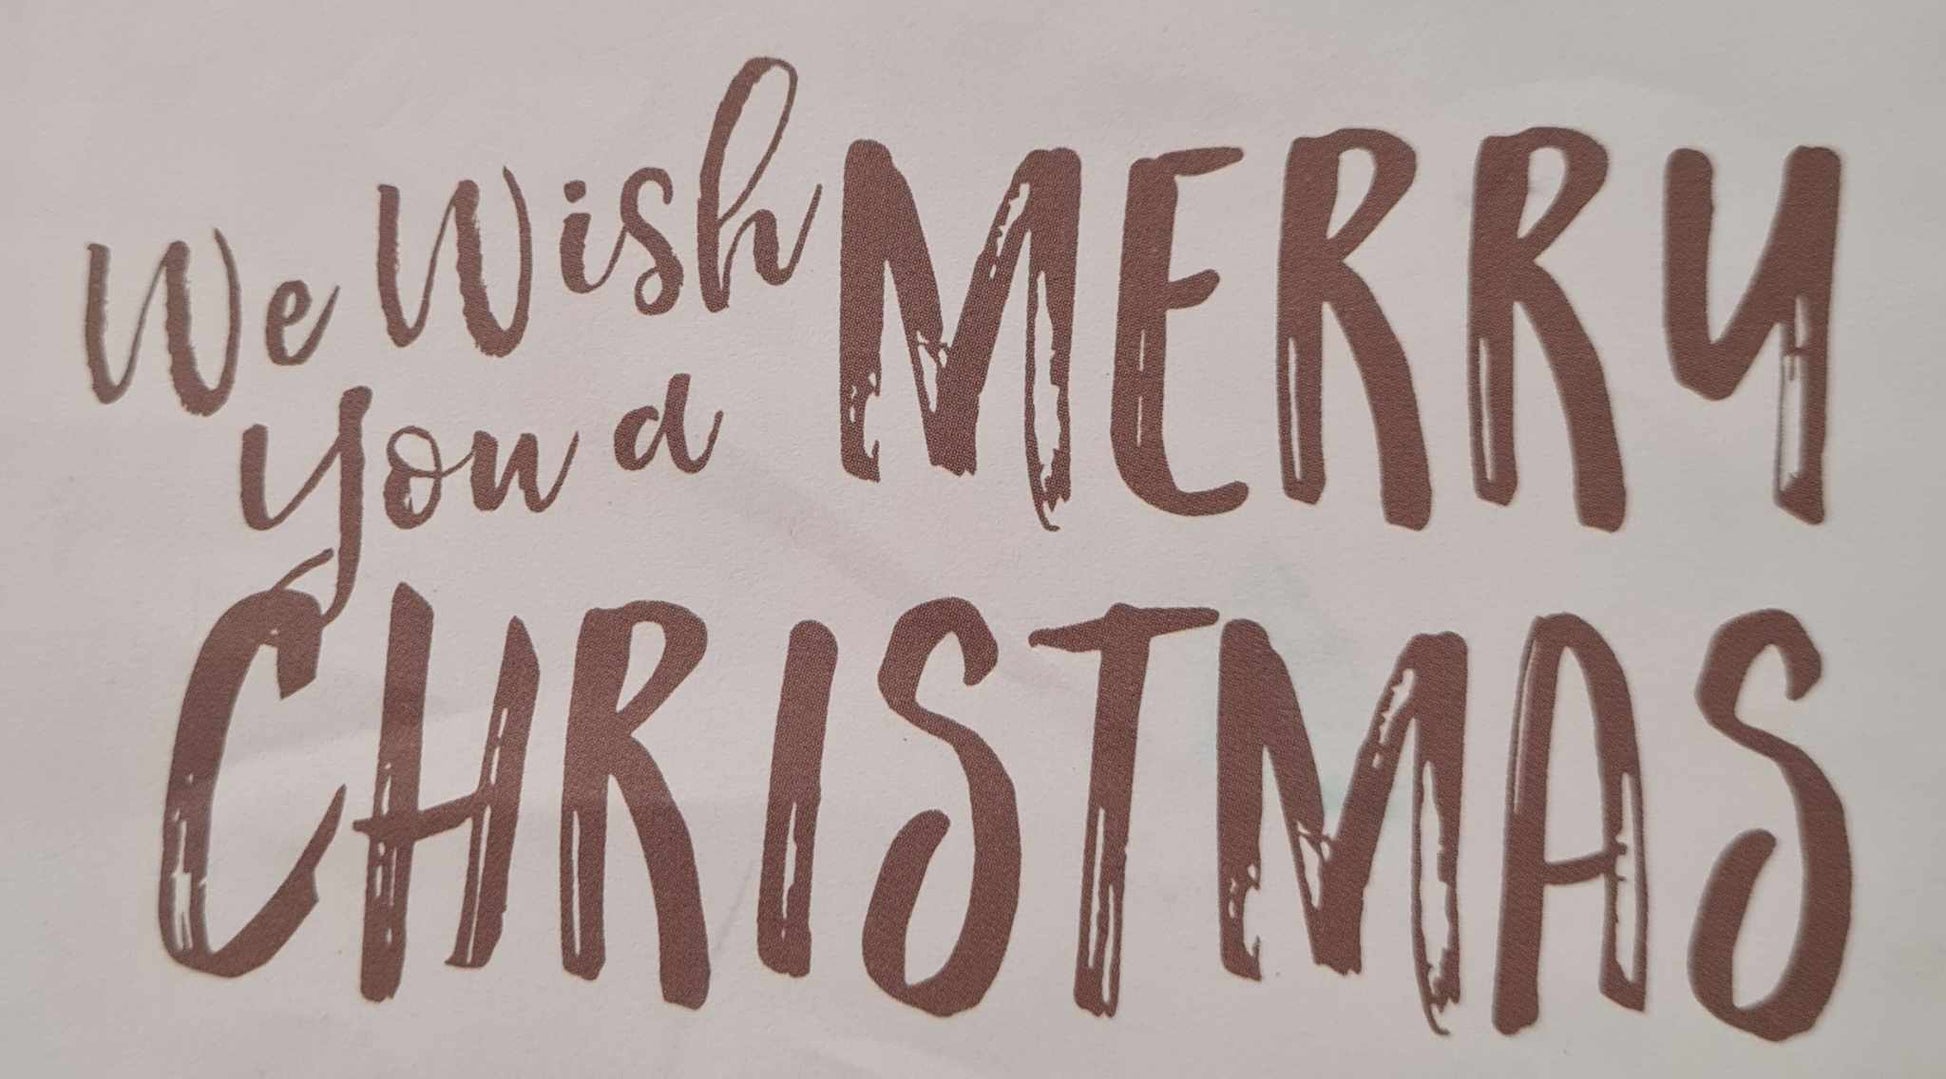 We Wish
You a
MERRY
CHRISTMAS